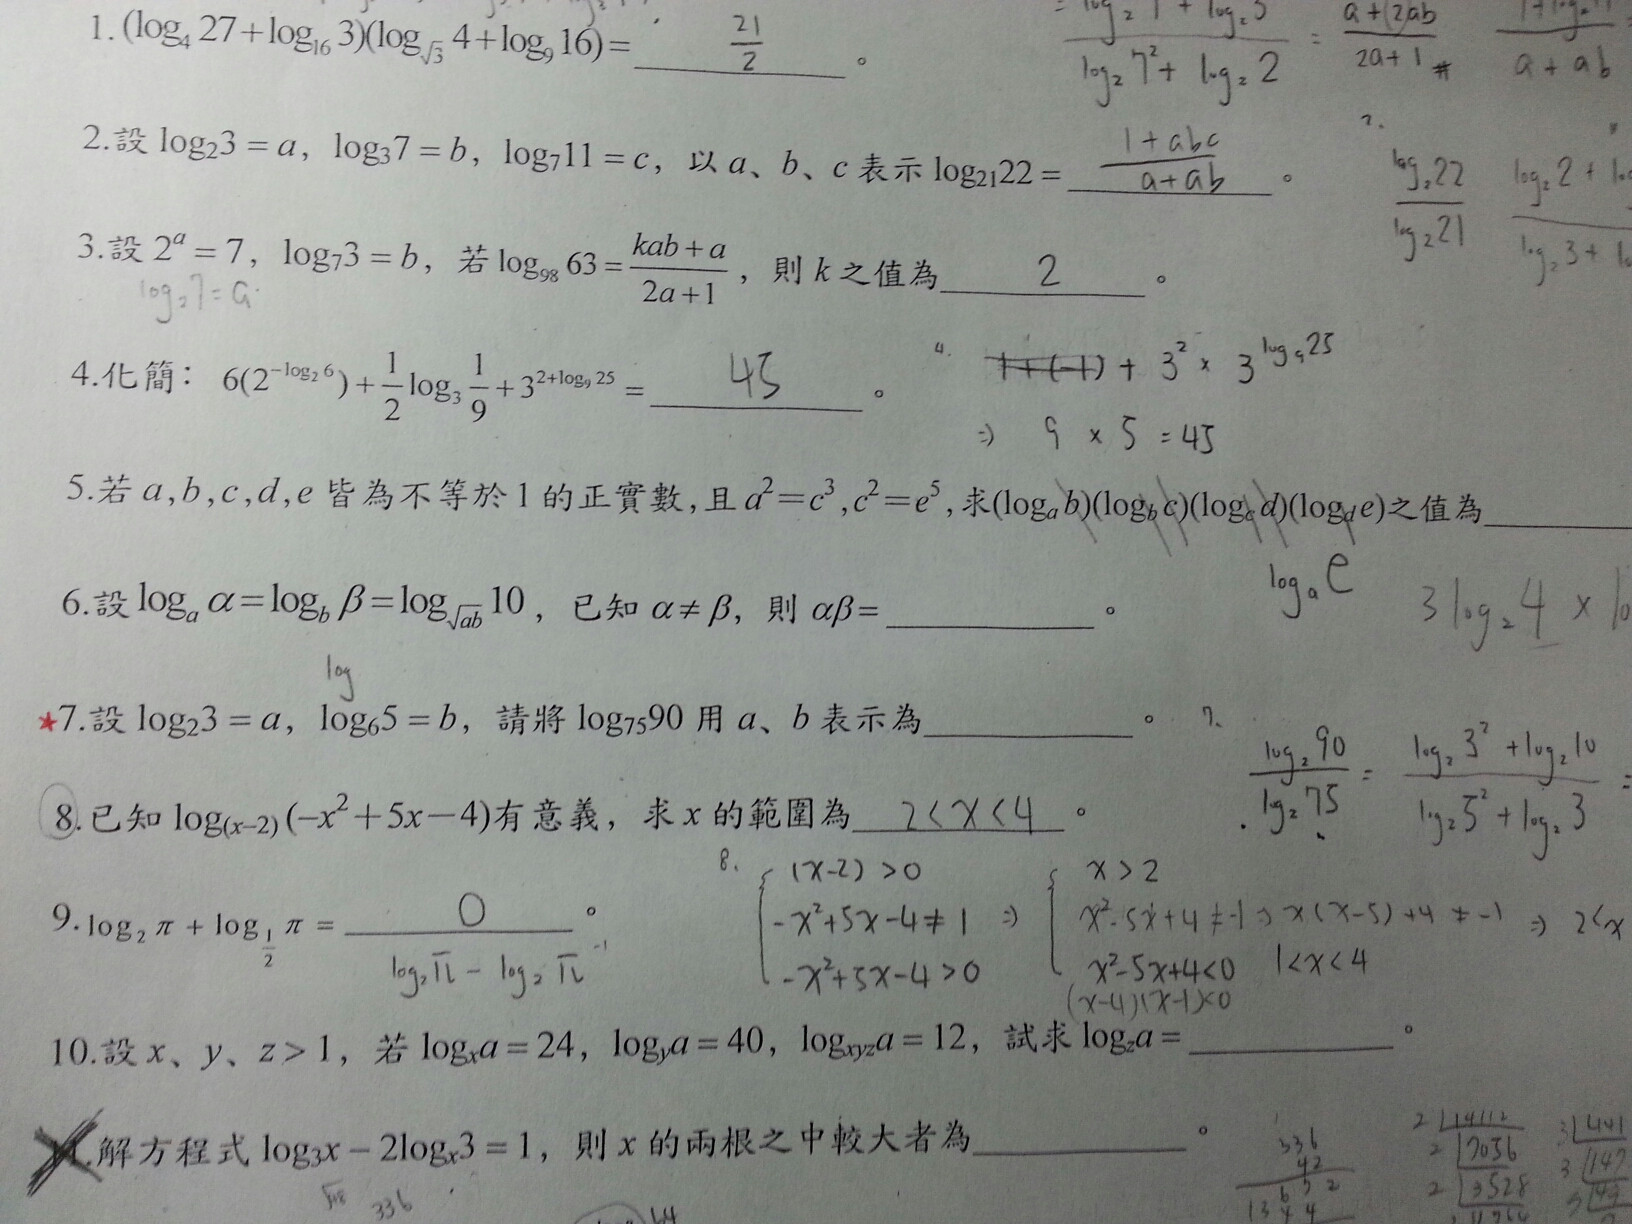 1. (log₄ 27+log₁₆ 3)(log_√3 4+log₉ 16)= 21/2 。
= log₂ 7 + log₂ / log₂ 7²+ log₂ 2 = a+(2)ab / 2a+1 #
a + ab
2.設 log₂3 = a, log₃7 = b, log₇11 = c, 以 a、b、c 表示 log₂₁22 = 1+abc / a+ab 。
2. log₂22 / log₂21 log₂2 + / log₂3 +
3.設 2ᵃ = 7, log₇3 = b, 若 log₉₈ 63 = kab + a / 2a+1 , 則 k 之值為 2 。
log₂7 = a
4.化簡: 6(2^(-log₂ 6)) + 1/2 log₃ 1/9 + 3^(2+log₉ 25) = 45 。
4. 1+(-1) + 3² × 3^(log₉25)
⇒ 9 × 5 = 45
5.若 a,b,c,d,e 皆為不等於1的正實數,且 a²=c³,c²=e⁵,求(logₐ b)(log_b c)(log_c d)(log_d e)之值為
logₐ e
3log₂4 ×
6.設 logₐ α = log_b β = log_√ab 10 , 已知 α≠β, 則 αβ= 。
log
★7.設 log₂3 = a, log₆5 = b, 請將 log₇₅90 用 a、b 表示為 。
7. log₂ 90 / log₂ 75 = log₂ 3² + log₂ 10 / log₂ 5² + log₂ 3 =
8.已知 log₍ₓ₋₂₎ (−x²+5x−4)有意義, 求 x 的範圍為 2<x<4 。
8. { (x-2) >0
-x²+5x-4≠1
-x²+5x-4>0
⇒ { x>2
x²-5x+4≠-1 ⇒ x(x-5)+4 ≠ -1 ⇒ 2<x
x²-5x+4<0 1<x<4
(x-4)(x-1)<0
9. log₂ π + log_1/2 π = 0 。
log₂π - log₂ π⁻¹
10.設 x、y、z > 1, 若 logₓa = 24, log_y a = 40, log_xyz a = 12, 試求 log_z a = 。
11.解方程式 log₃x − 2logₓ3 = 1, 則 x 的兩根之中較大者為 。
336
336
42
6 7 2
13 4 4
2 14112
2 7056
2 3528
3 441
3 147
64